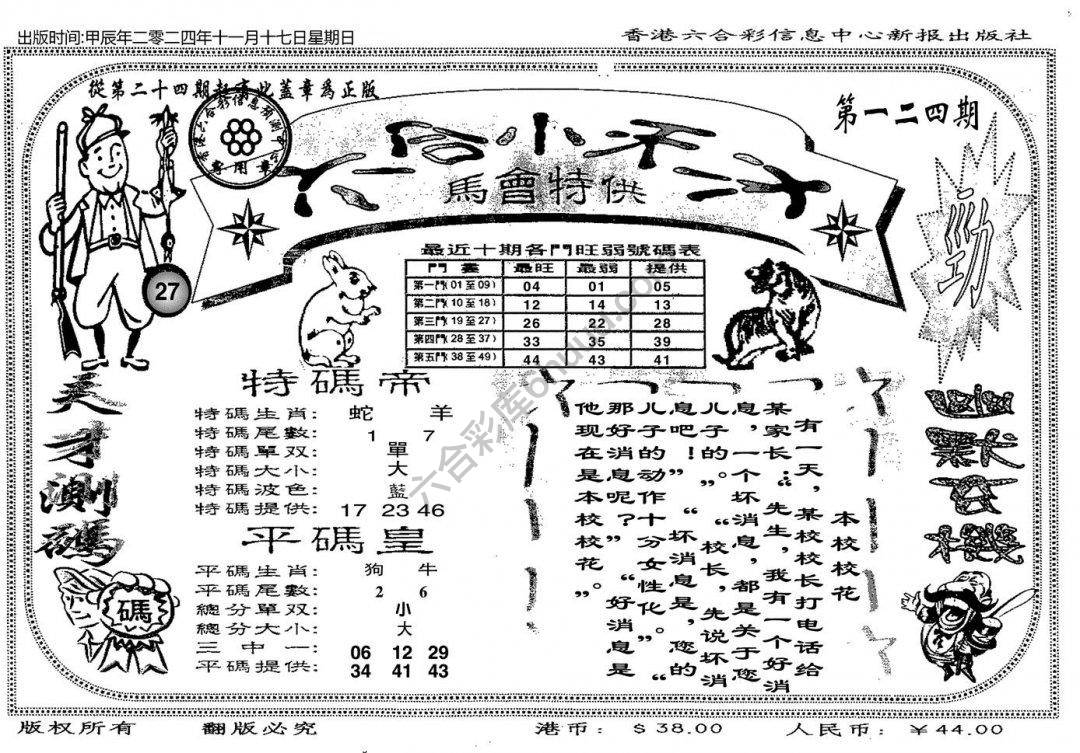 出版时间:甲辰年二零二四年十一月十七日星期日
香港六合彩信息中心新报出版社
從第二十四期起
蓋章爲正版
第一二四期
專用章
馬會特供
勁
27
最近十期各門旺弱號碼表
門畫 最旺 最弱 提供
第一門(01至09) 04 01 05
第二門(10至18) 12 14 13
第三門(19至27) 26 22 28
第四門(28至37) 33 35 39
第五門(38至49) 44 43 41
天才測碼
特碼帝
特碼生肖: 蛇 羊
特碼尾數: 1 7
特碼單双: 單
特碼大小: 大
特碼波色: 藍
特碼提供: 17 23 46
平碼皇
平碼生肖: 狗 牛
平碼尾數: 2 6
總分單双: 小
總分大小: 大
三中一: 06 12 29
平碼提供: 34 41 43
碼
本校校花
有一天,某校校长打电话给
某家长:“先生,我有一个好消
息,一个坏消息,都是关于您
儿子的。”“校长,先说坏消
息吧!”“坏消息是,您的
儿子的动作十分女性化。”
那好消息呢?”“好消息是
他现在是本校校花。”
幽默玄機
六合彩库
版权所有
翻版必究
港币: $38.00
人民币: ¥44.00